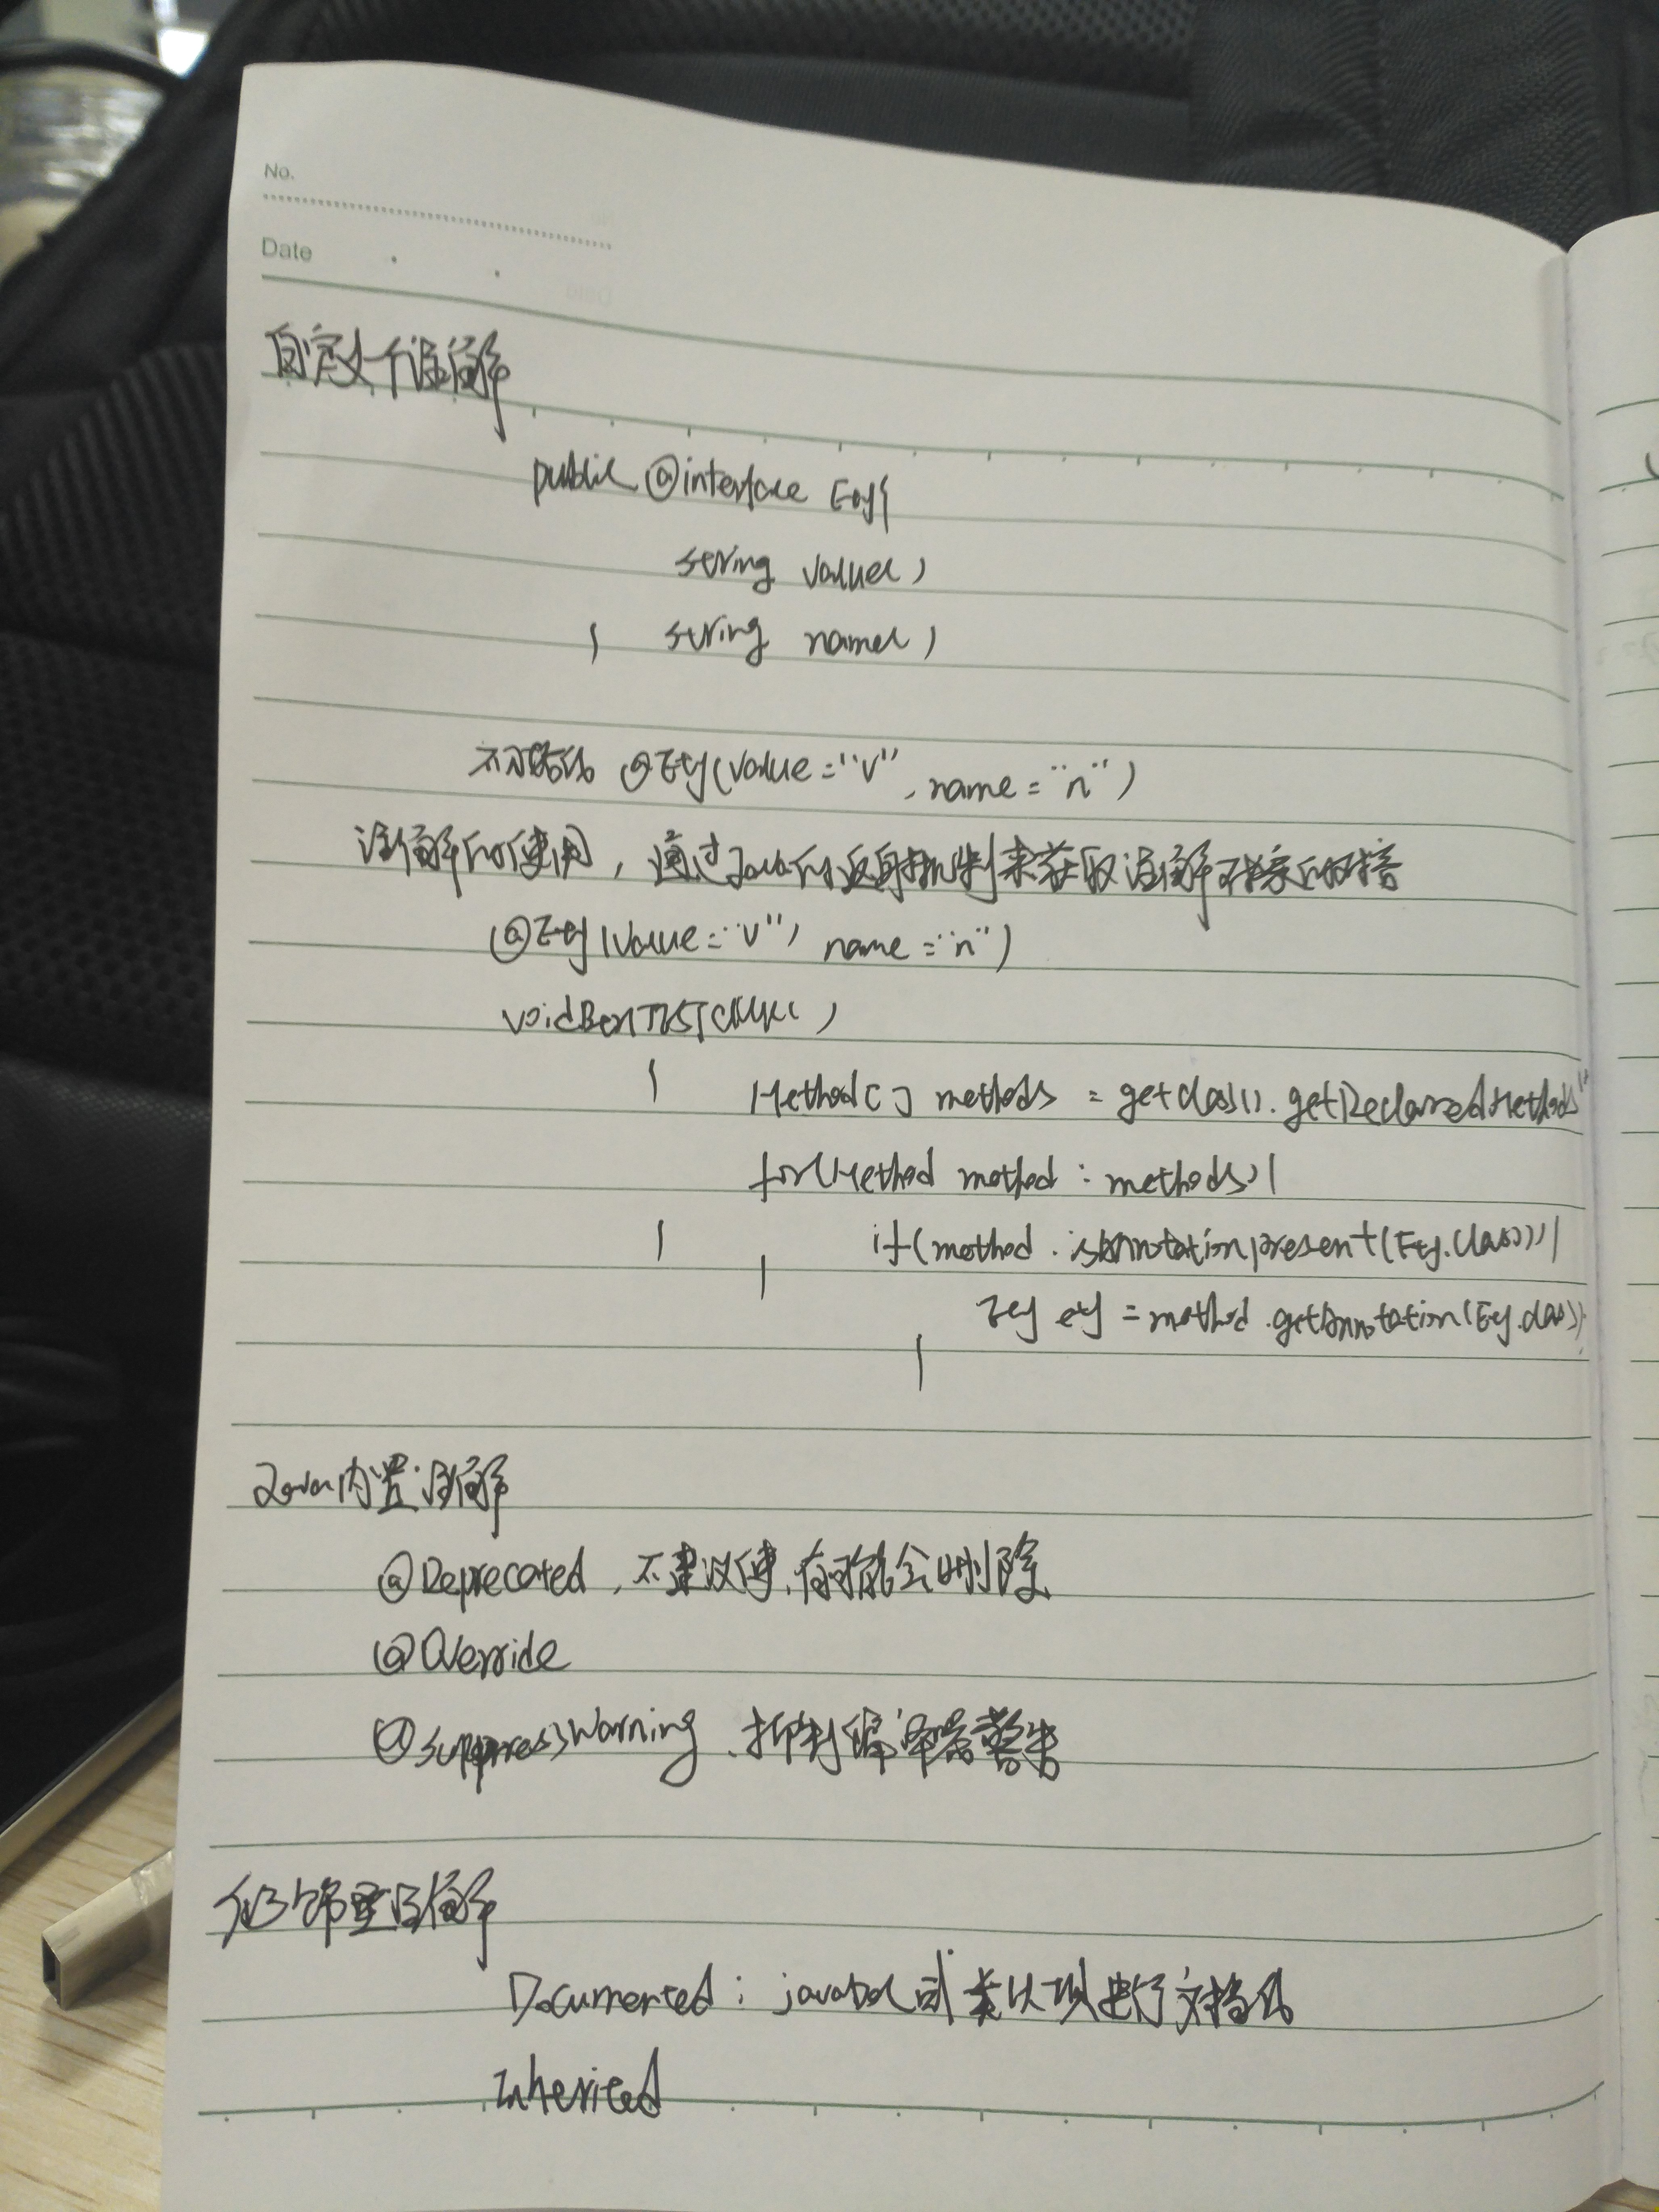 No.
Date
自定义一个注解
public @interface Ety{
string value()
} string name()
@Ety(value="v", name="n")
注解的使用，通过Java的反射机制来获取注解
@Ety(value="v", name="n")
void
{ Method[] methods = getclass().getDeclaredMethods
for(Method method : methods){
} if(method.isAnnotationpresent(Ety.class)){
} Ety ety = method.getAnnotation(Ety.class)
}
Java内置注解
@Deprecated，不建议使，有可能会删除
@Override
@suppressWarning，抑制编译器警告
注解
Documented: javadoc 进行文档化
Inherited